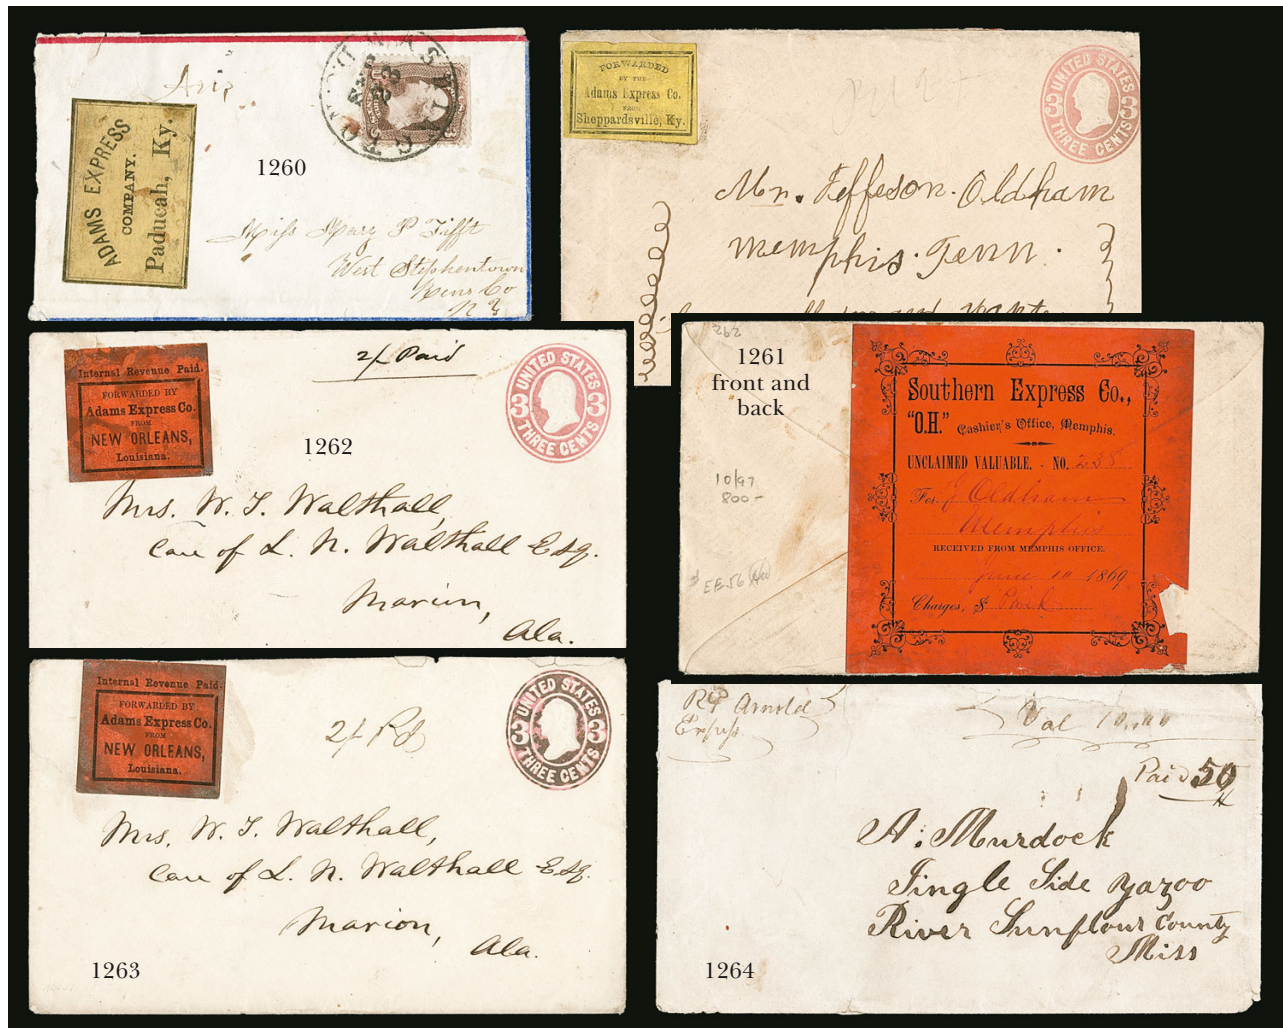 Aris
ADAMS EXPRESS
COMPANY.
Paducah, Ky.
WASHINGTON
1260
Miss Mary P Tifft
West Stephentown
Rens Co
N Y
FORWARDED
BY THE
Adams Express Co.
FROM
Sheppardsville, Ky.
UNITED STATES
3 3
THREE CENTS
Mr. Jeffeson. Oldham
Memphis. Tenn.
Internal Revenue Paid.
FORWARDED BY
Adams Express Co.
FROM
NEW ORLEANS,
Louisiana.
2/- Paid
UNITED STATES
3 3
THREE CENTS
1262
Mrs. W. T. Walthall,
Care of L. N. Walthall Esq.
Marion,
Ala.
262
1261
front and
back
10/97
800-
Southern Express Co.,
"O.H." Cashier's Office, Memphis.
UNCLAIMED VALUABLE. - NO. 238
For J Oldham
Memphis
RECEIVED FROM MEMPHIS OFFICE.
June 10 1869
Charges, $ Paid
Internal Revenue Paid.
FORWARDED BY
Adams Express Co.
FROM
NEW ORLEANS,
Louisiana.
2/- Pd
UNITED STATES
3 3
THREE CENTS
Mrs. W. T. Walthall,
Care of L. N. Walthall Esq.
Marion,
Ala.
1263
Arnold
Express
Val 10.00
Paid 50
A. Murdock
Jingle Side Yazoo
River Sunflour County
Miss
1264